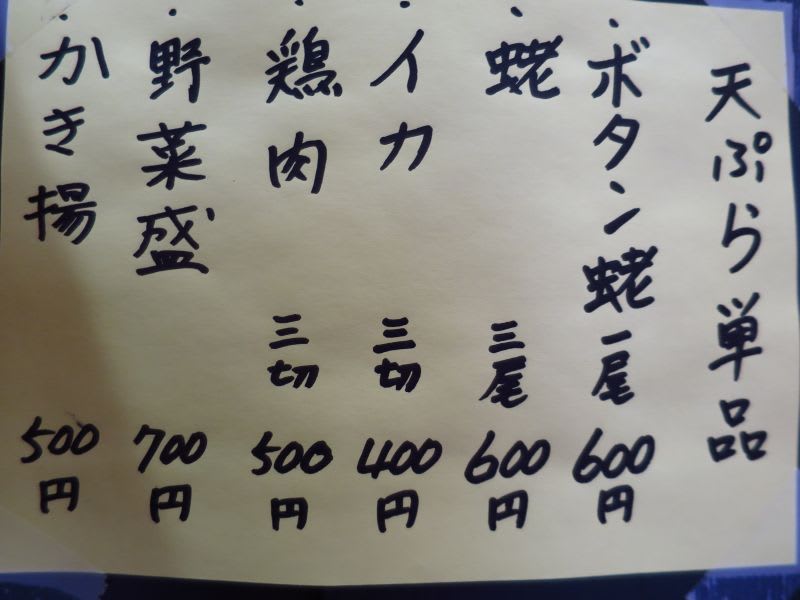 天ぷら単品
・ボタン蛯 一尾 600円
・蛯 三尾 600円
・イカ 三切 400円
・鶏肉 三切 500円
・野菜盛 700円
・かき揚 500円